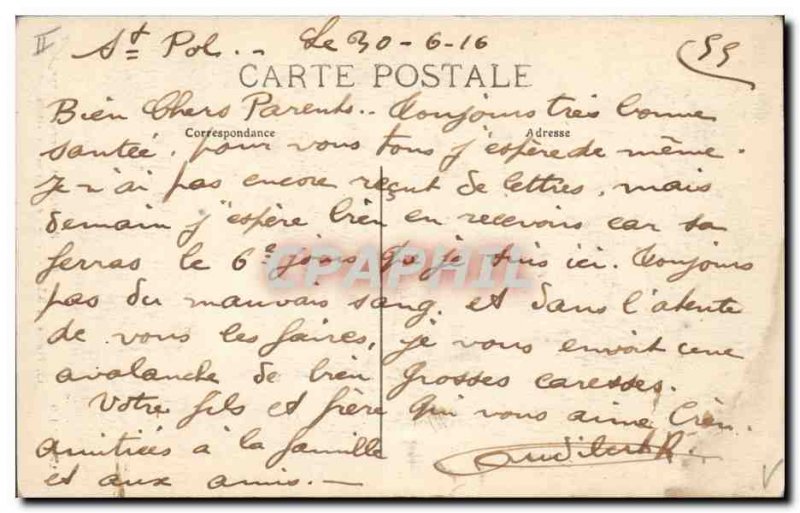 II
St Pol. - Le 30-6-16
55
CARTE POSTALE
Bien Chers Parents.. Toujours très bonne
Correspondance
Adresse
santée, pour vous tous j'espère de même.
Je n'ai pas encore reçut de lettres, mais
demain j'espère bien en recevoir car sa
ferras le 6e jours que je suis ici. Toujours
CPAPHIL
pas du mauvais sang, et dans l'atente
de vous les faires, je vous envoit une
avalanche de bien grosses caresses.
Votre fils et frère qui vous aime bien.
amitiées à la famille
et aux amis. -